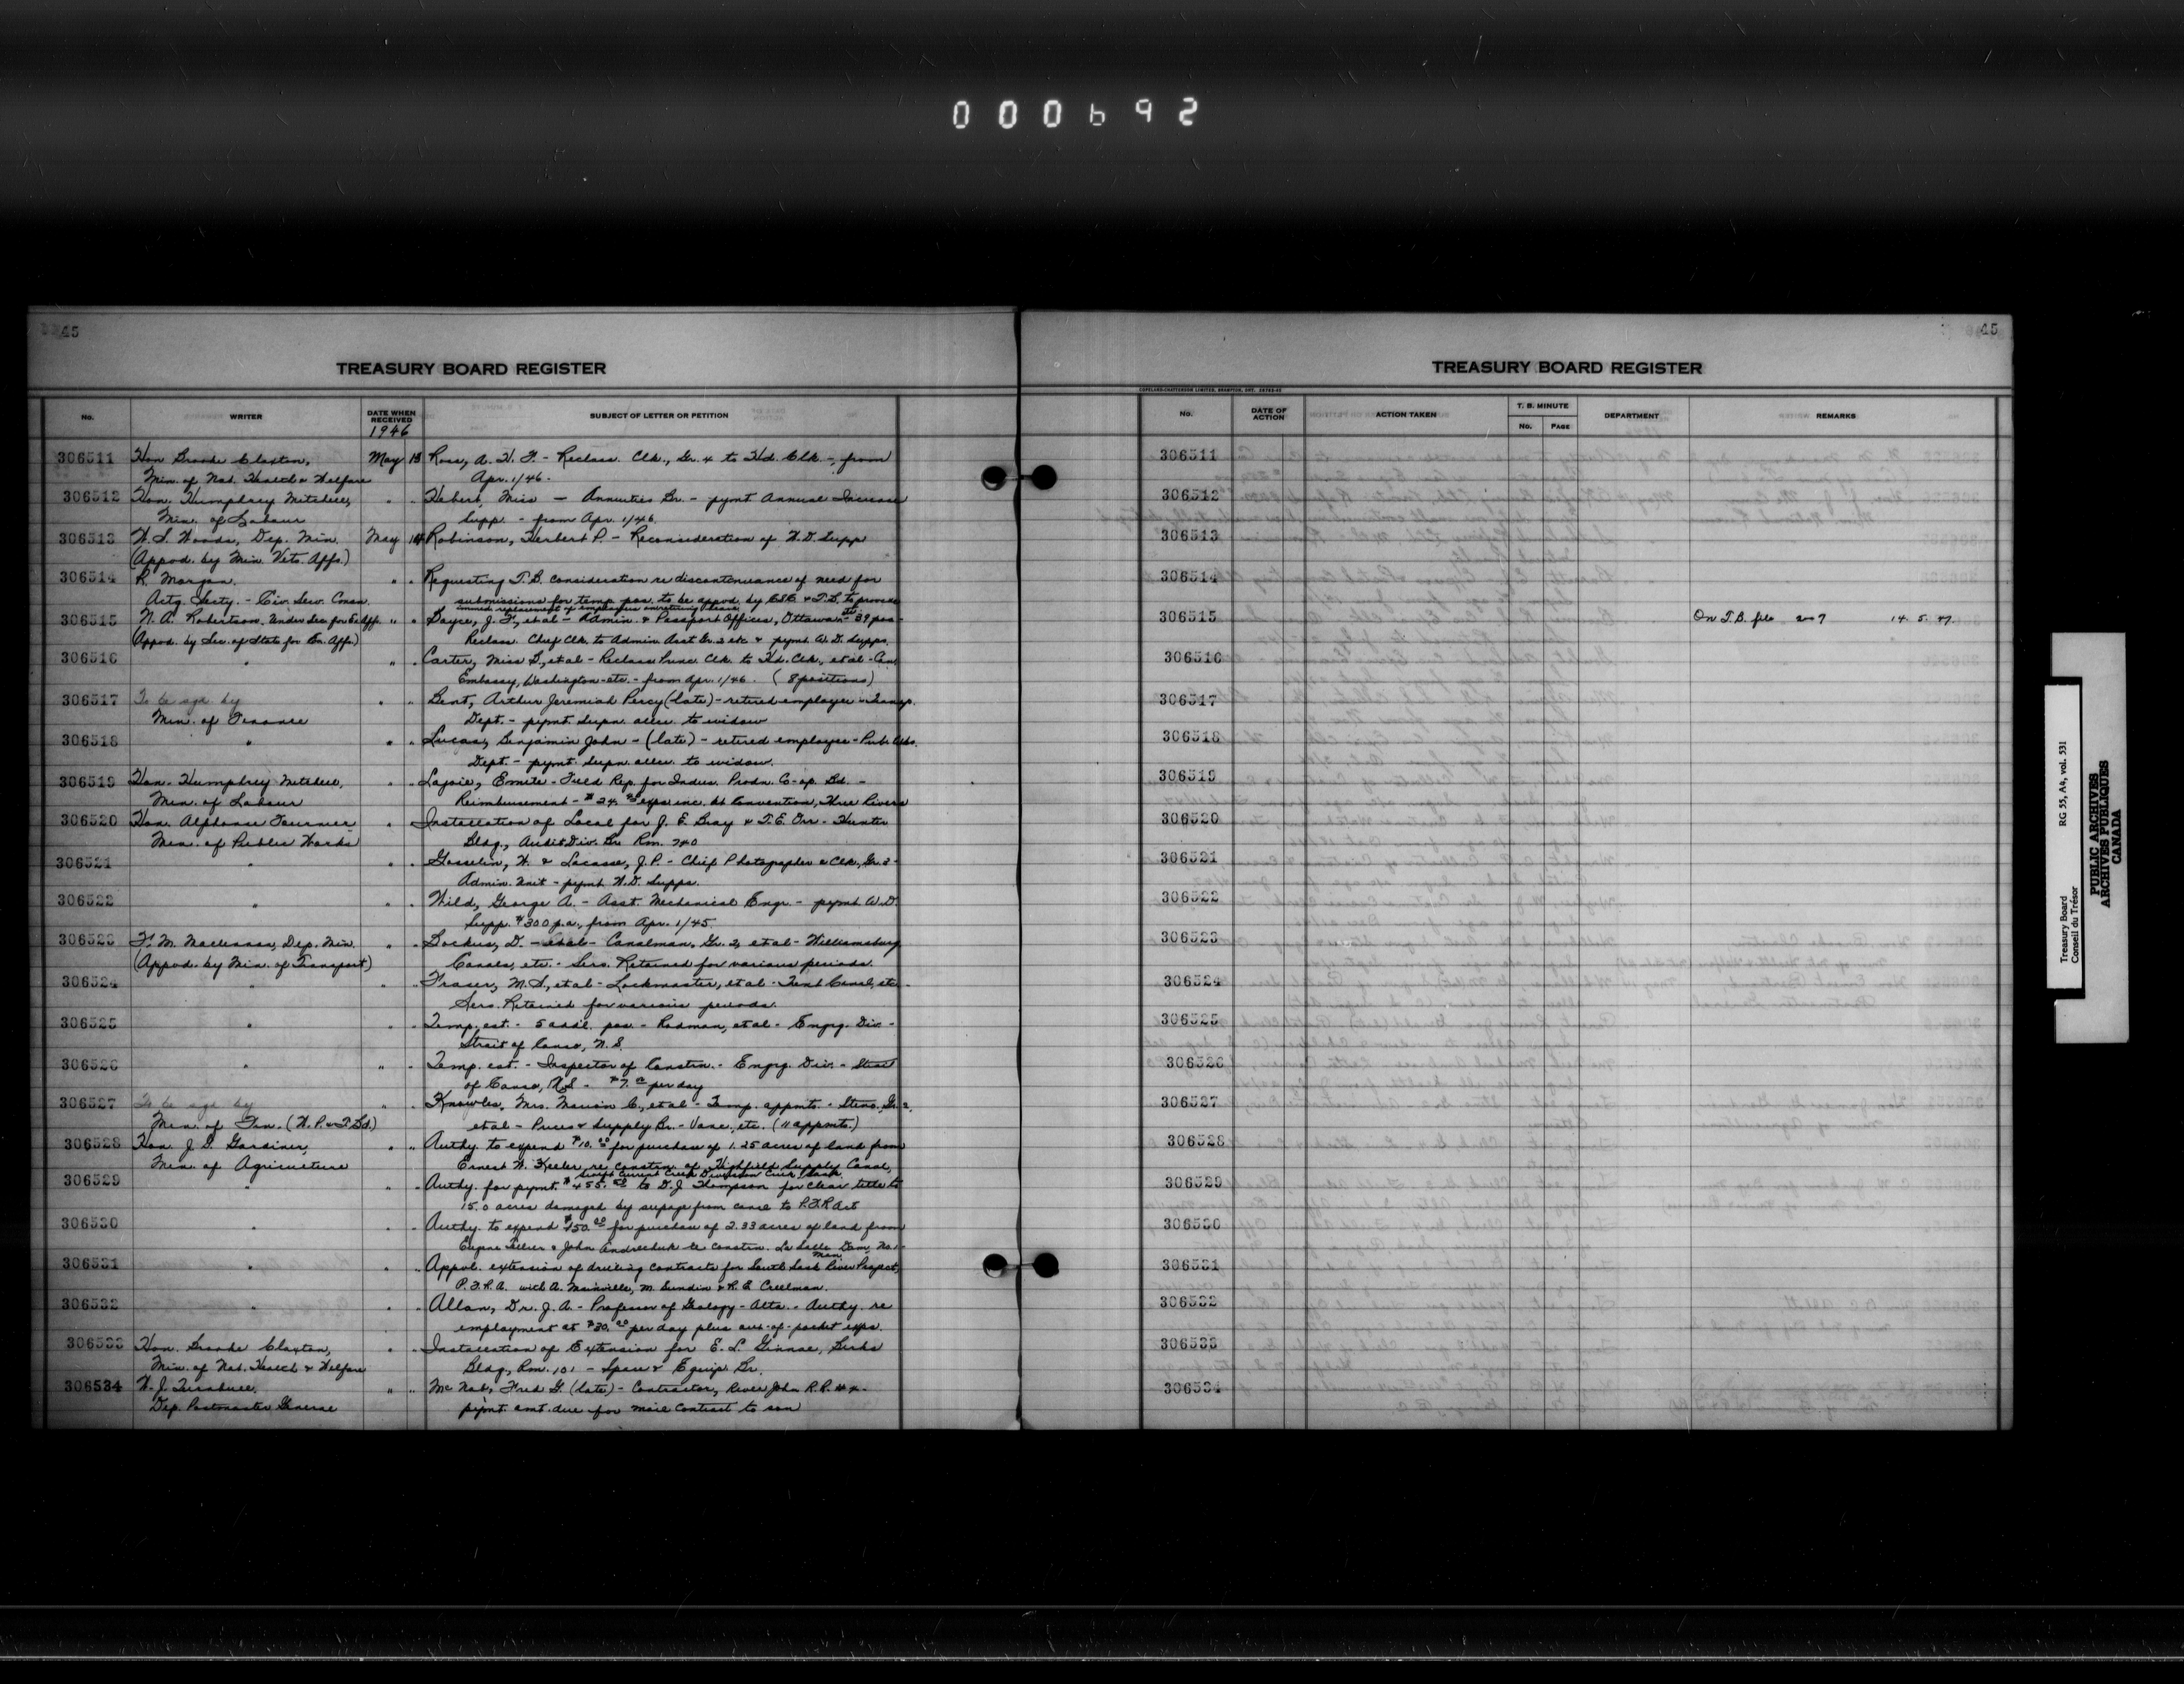 000692
45
TREASURY BOARD REGISTER
No. WRITER DATE WHEN RECEIVED SUBJECT OF LETTER OR PETITION
1946
306511 Hon Brooke Claxton, May 13 Ross, A. H. F. - Reclass. Clk., Gr. 4 to Hd. Clk. -, from
Min. of Nat. Health & Welfare Apr. 1/46.
306512 Hon. Humphrey Mitchell, " " Hebert, Miss - Annuities Br. - pymt Annual Increase
Min. of Labour Supp. - from Apr. 1/46.
306513 W. S. Woods, Dep. Min. May 14 Robinson, Herbert P. - Reconsideration of W.D. Supp
(Appvd. by Min. Vets. Affs.)
306514 R. Morgan, " " Requesting T.B. consideration re discontinuance of need for
Actg. Secty. - Civ. Serv. Comm. submissions for temp. pos. to be appvd. by CSC & T.B. to provide
immed. replacement of employees on retiring leave
306515 N. A. Robertson, Under Sec for Ex Aff. " " J. F., et al - Admin. & Passport Offices, Ottawa - 39 pos -
(Appvd. by Sec. of State for Ex. Affs.) Reclass. Chief Clk. to Admin. Asst Gr. 2 etc & pymt W.D. Supps.
306516 " " " Carter, Miss B., et al - Reclass Princ. Clk. to Hd. Clk., et al - Can
Embassy, Washington - etc. - from Apr. 1/46. (8 positions)
306517 To be sgd. by " " Bent, Arthur Jeremiah Percy (late) - retired employee - Transp.
Min. of Finance Dept. - pymt. Supn. allce. to widow
306518 " " " Lucas, Benjamin John - (late) - retired employee - Pub. Wks.
Dept. - pymt. Supn. allce. to widow.
306519 Hon. Humphrey Mitchell, " " Lajoie, Emile - Field Rep. for Indus. Prodn. Co-op. Bd. -
Min. of Labour Reimbursement - $24. exps inc. at Convention, Three Rivers
306520 Hon. Alphonse Fournier " Installation of Local for J. E. Bray & T. E. Orr - Hunter
Min. of Public Works Bldg., Audit Div. Br. Rm. 740
306521 " " " Gosselin, W. & Lacasse, J.P. - Chief Photographer & Clk., Gr. 3 -
Admin. Unit - pymt W.D. Supps.
306522 " " " Wild, George A. - Asst. Mechanical Engr. - pymt W.D
Supp. $300 p.a., from Apr. 1/45.
306523 Dep. Min. " " D. - et al - Canalman, Gr. 2, et al - Williamsburg
(Appvd. by Min. of Transport) Canals, etc. - Sers. Retained for various periods.
306524 " " Fraser, M. S., et al - Lockmaster, et al - Trent Canal, etc -
Sers. Retained for various periods.
306525 " " " Temp. est. - 5 addl. pos. - Rodman, et al - Engrg. Div. -
Strait of Canso, N.S.
306526 " " " Temp. est. - Inspector of Constrn. - Engrg. Div. - Strait
of Canso, N.S - $7. per day
306527 To be sgd. by " " Knowles, Mrs. Marion C., et al - Temp. appmts. - Steno. Gr. 2,
Min. of Fin. (W.P. & T.Bd.) et al - Prices & Supply Br. - Vanc., etc. (11 appmts.)
306528 Hon. J. G. Gardiner, " " Authy. to expend $10.00 for purchase of 1.25 acres of land from
Min. of Agriculture Ernest W. Keeler re constrn. of Highfield Supply Canal,
Swift Current Creek Diversion Sask
306529 " " " Authy. for pymt. $455.00 to D. J. Thompson for clear title to
15.0 acres damaged by seepage from canal to P.F.R. Act
306530 " " " Authy. to expend $50.00 for purchase of 2.33 acres of land from
Eugene & John re constrn. La Salle Dam, No.
Man.
306531 " " " Appvl. extension of drilling contracts for South Sask River Project,
P.F.R.A. with A. Mainville, M. Sundin & R. A. Creelman.
306532 " " " Allan, Dr. J. A. - Professor of Geology - Alta. - Authy. re
employment at $30.00 per day plus out-of-pocket exps.
306533 Hon. Brooke Claxton, " " Installation of Extension for E. L. Birks
Min. of Nat. Health & Welfare Bldg., Rm. 101 - Space & Equip. Br.
306534 W. J. Turnbull, " " McNab, Fred G. (late) - Contractor, River John R.R. #4 -
Dep. Postmaster General pymt. amt. due for mail contract to son
45
TREASURY BOARD REGISTER
COPELAND-CHATTERSON LIMITED, BRAMPTON, ONT.
No. DATE OF ACTION ACTION TAKEN T. B. MINUTE No. PAGE DEPARTMENT REMARKS
306511
306512
306513
306514
306515 On T.B. file 2007 14. 5. 47.
306516
306517
306518
306519
306520
306521
306522
306523
306524
306525
306526
306527
306528
306529
306530
306531
306532
306533
306534
Treasury Board RG 55, A4, vol. 531
Conseil du Trésor
PUBLIC ARCHIVES
ARCHIVES PUBLIQUES
CANADA